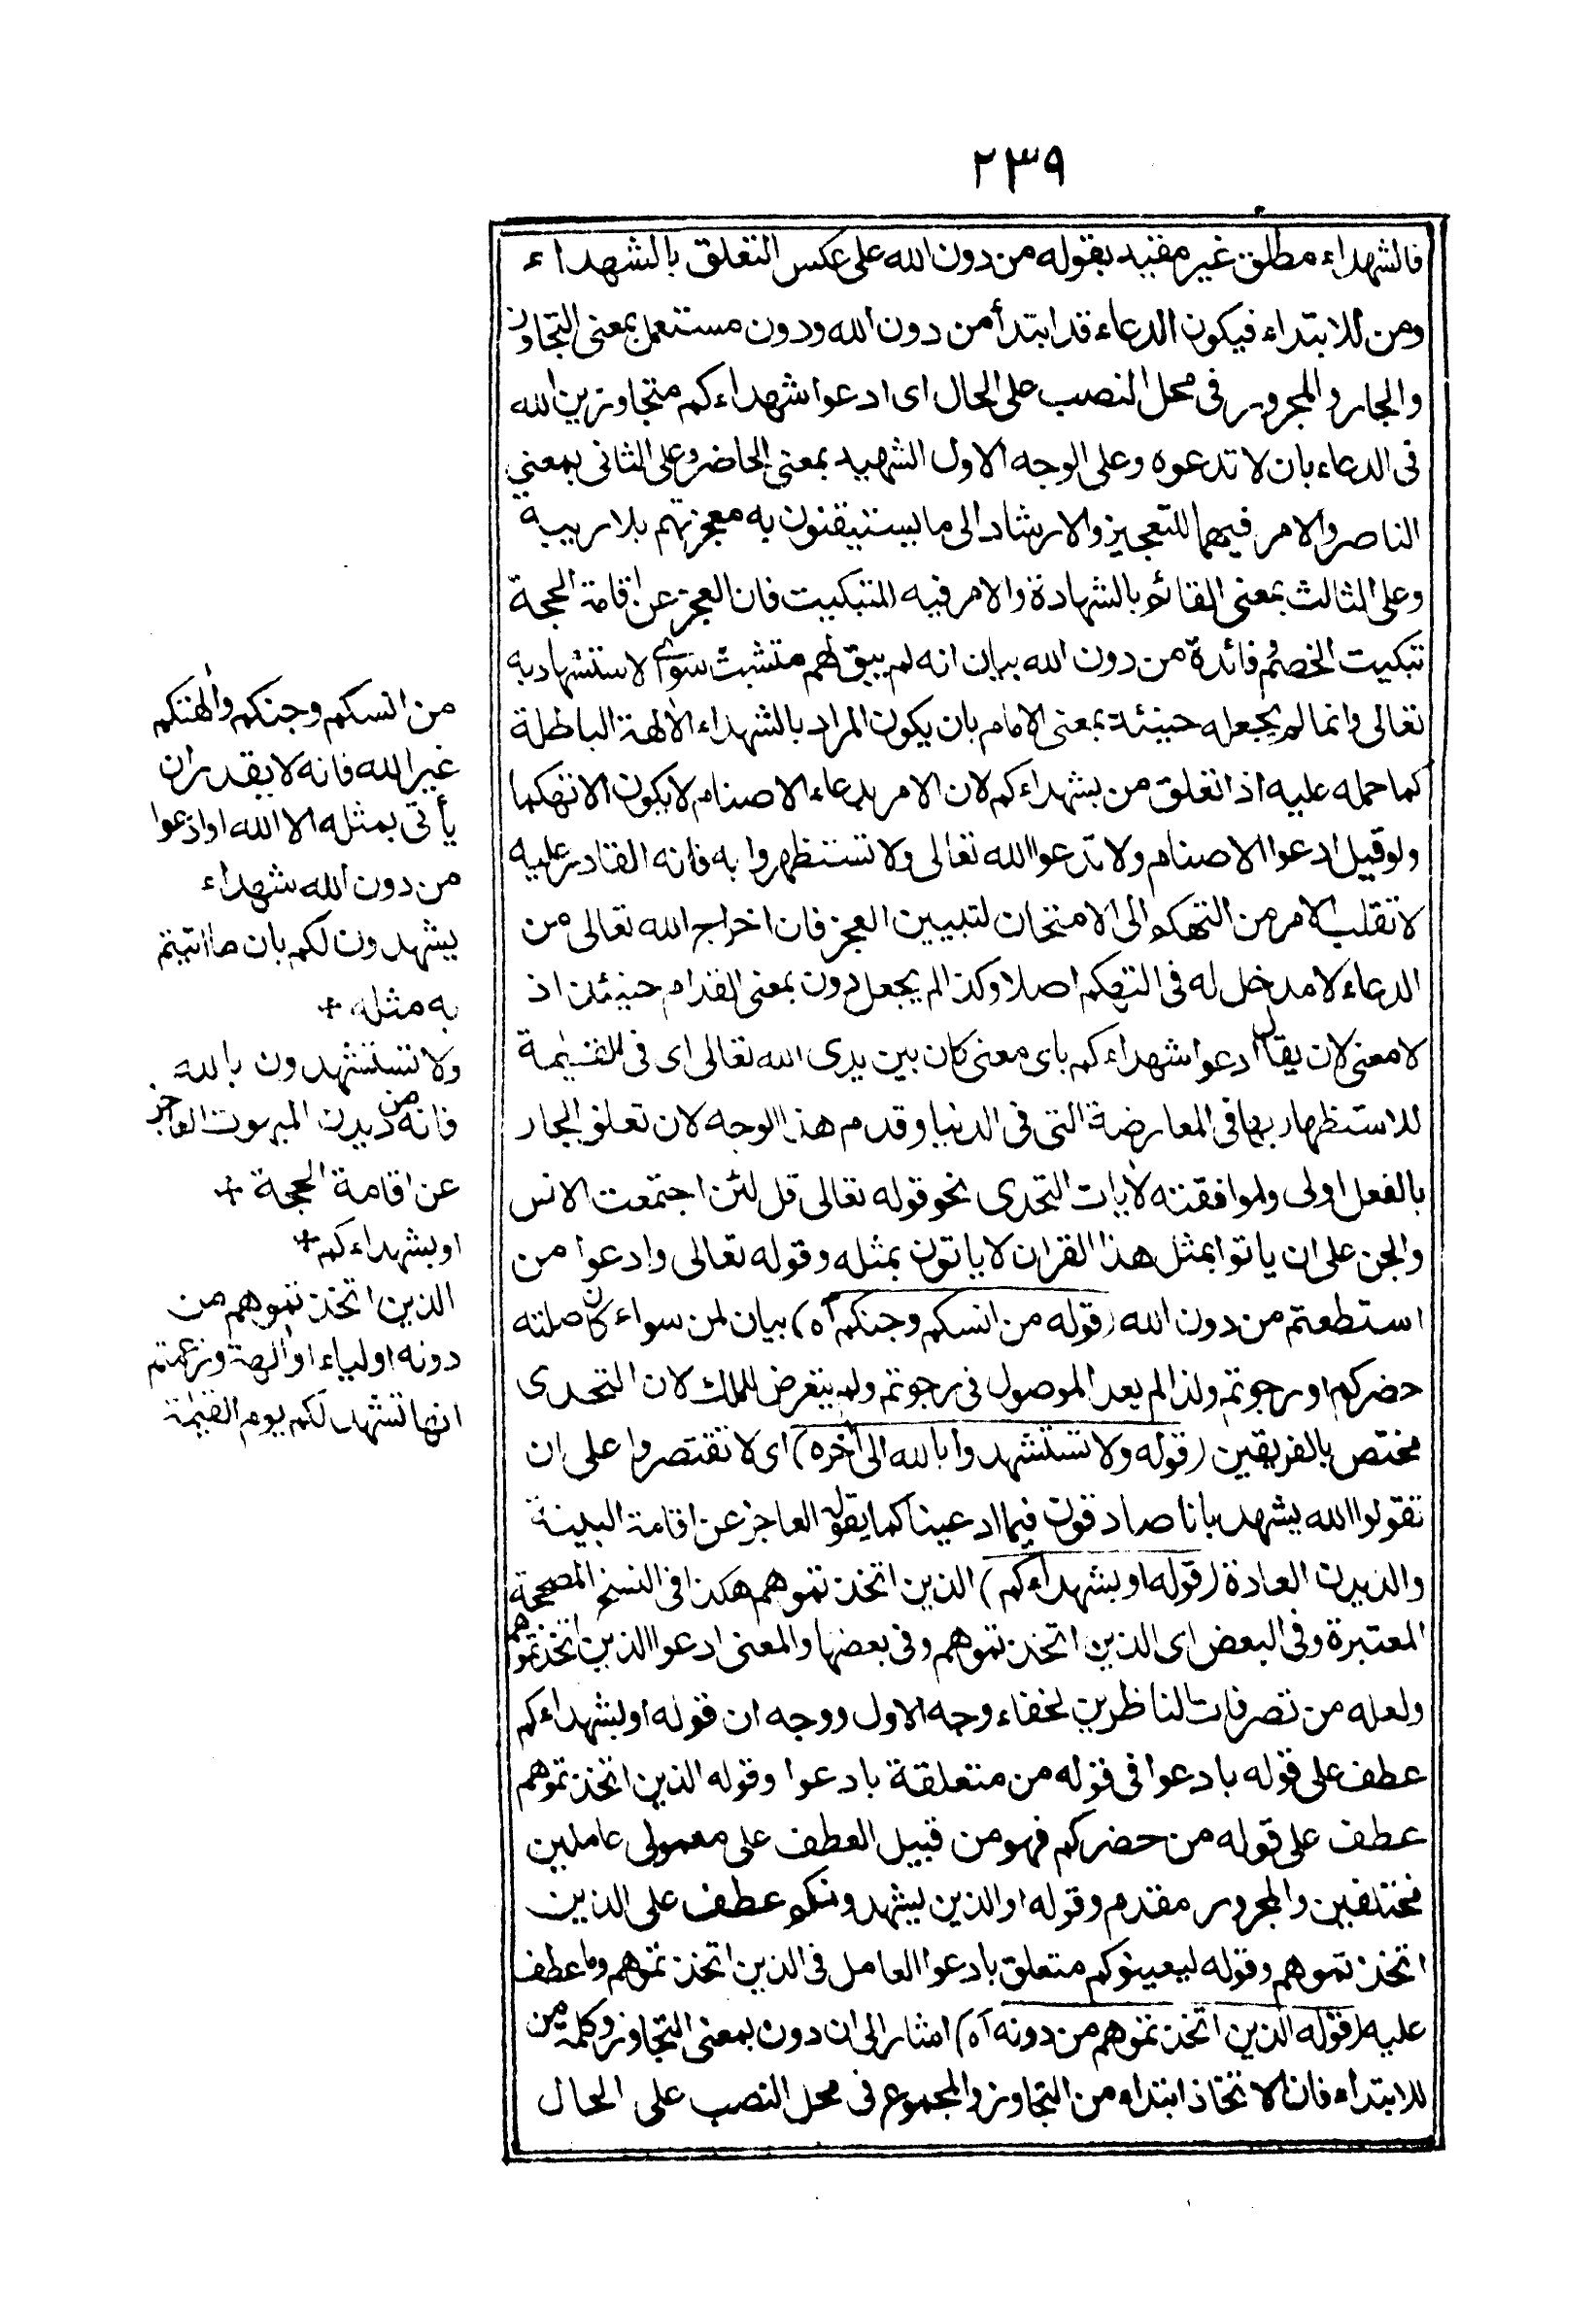 ٢٣٩
فالشهداء مطلق غير مقيد بقوله من دون الله على عكس التعلق بالشهداء
ومن للابتداء فيكون الدعاء قد ابتدأ من دون الله ودون مستعمل بمعنى التجاوز
والجار والمجرور فى محل النصب على الحال اى ادعوا شهداءكم متجاوزين الله
فى الدعاء بان لا تدعوه وعلى الوجه الاول الشهيد بمعنى الحاضر وعلى الثانى بمعنى
الناصر والامر فيهما للتعجيز والارشاد الى ما يستيقنون به معجزتهم بلا ريبة
وعلى الثالث بمعنى القائم بالشهادة والامر فيه للتبكيت فان العجز عن اقامة الحجة
تبكيت الخصم فائدة من دون الله بيان انه لم يبق لهم متشبث سوى الاستشهاد به
تعالى وانما لم يجعله حينئذ بمعنى الامام بان يكون المراد بالشهداء الآلهة الباطلة
كما حمله عليه اذا تعلق من بشهداءكم لان الامر بدعاء الاصنام لا يكون الا تهكما
ولو قيل ادعوا الاصنام ولا تدعوا الله تعالى ولا تستظهروا به فانه القادر عليه
لانقلب الامر من التهكم الى الامتحان لتبيين العجز فان اخراج الله تعالى من
الدعاء لا مدخل له فى التهكم اصلا وكذا لم يجعل دون بمعنى القدام حينئذ اذ
لا معنى لان يقال ادعوا شهداءكم باى معنى كان بين يدى الله تعالى اى فى القيمة
للاستظهار بها فى المعارضة التى فى الدنيا وقدم هذا الوجه لان تعلق الجار
بالفعل اولى ولموافقته لآيات التحدى نحو قوله تعالى قل لئن اجتمعت الانس
والجن على ان ياتوا بمثل هذا القران لا ياتون بمثله وقوله تعالى وادعوا من
استطعتم من دون الله (قوله من انسكم وجنكم آه) بيان لمن سواء كان صلته
حضركم او رجوتم ولذا لم يعد الموصول فى رجوتم ولم يتعرض للملك لان التحدى
مختص بالفريقين (قوله ولا تستشهدوا بالله الى آخره) اى لا تقتصروا على ان
تقولوا الله يشهد بانا صادقون فيما ادعينا كما يقول العاجز عن اقامة البينة
والديدن العادة (قوله او بشهداءكم) الذين اتخذتموهم هكذا فى النسخ المصححة
المعتبرة وفى البعض اى الذين اتخذتموهم وفى بعضها والمعنى ادعوا الذين اتخذتموهم
ولعله من تصرفات الناظرين لخفاء وجه الاول ووجه ان قوله او بشهداءكم
عطف على قوله بادعوا فى قوله من متعلقة بادعوا وقوله الذين اتخذتموهم
عطف على قوله من حضركم فهو من قبيل العطف على معمولى عاملين
مختلفين والمجرور مقدم وقوله او الذين يشهدونكم عطف على الذين
اتخذتموهم وقوله ليعينوكم متعلق بادعوا العامل فى الذين اتخذتموهم وما عطف
عليه (قوله الذين اتخذتموهم من دونه آه) اشار الى ان دون بمعنى التجاوز وكلمة من
للابتداء فان الاتخاذ ابتداء من التجاوز والمجموع فى محل النصب على الحال
من انسكم وجنكم وآلهتكم
غير الله فانه لا يقدر ان
يأتى بمثله الا الله او ادعوا
من دون الله شهداء
يشهدون لكم بان ما اتيتم
به مثله +
ولا تستشهدون بالله
فانه من ديدن المبهوت العاجز
عن اقامة الحجة +
او بشهداءكم +
الذين اتخذتموهم من
دونه اولياء او آلهة وزعمتم
انها تشهد لكم يوم القيمة